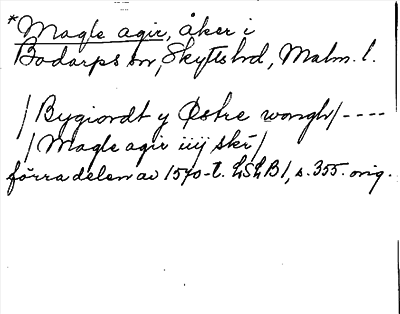 *Magle agir, åker i
Bodarps sn, Skytts hd, Malm. l.
/Bygiordt y Østre wongh/----
/Magle agir iiij skr/
förra delen av 1570-t. LSLB1, s. 355. orig.